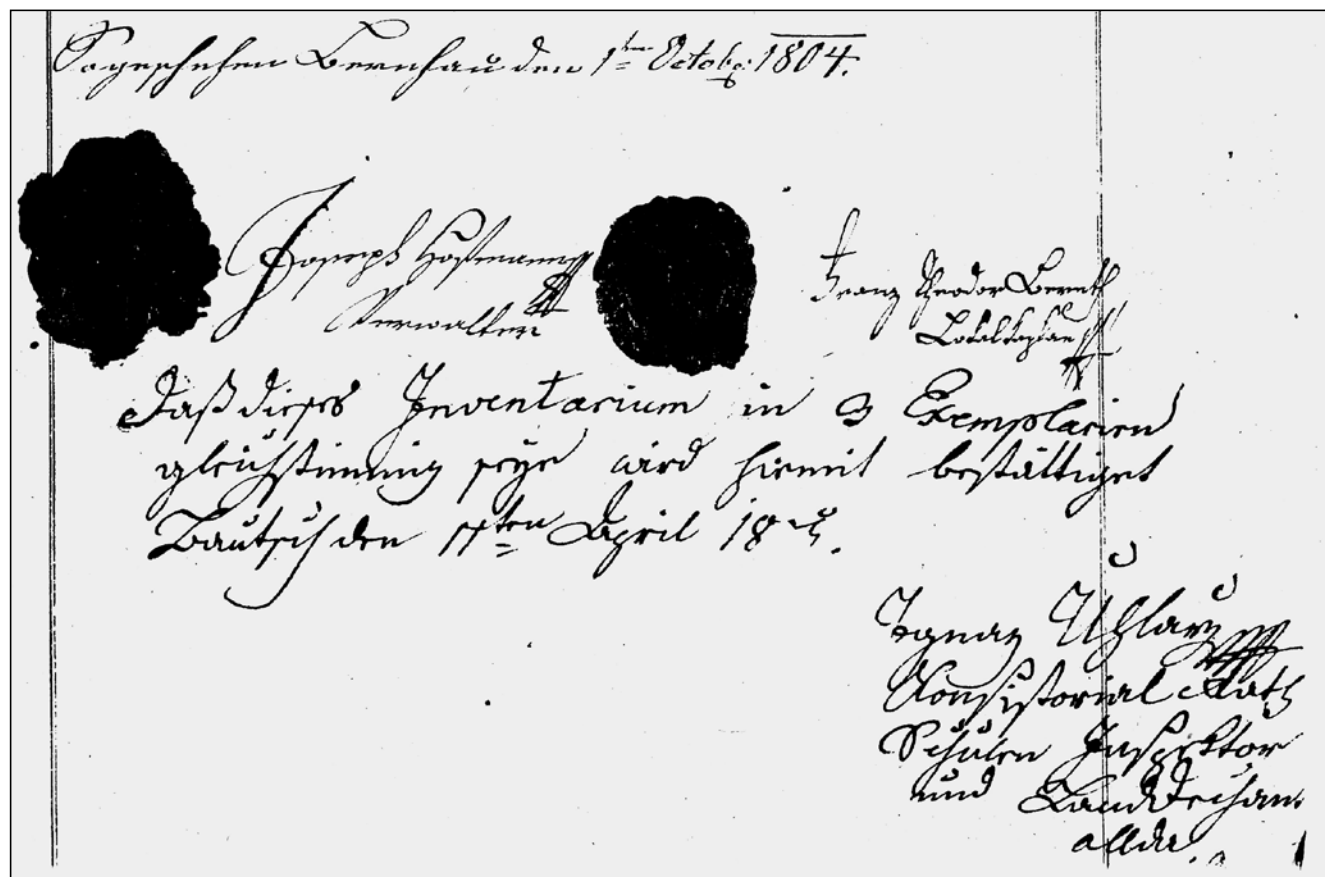 So geschehen Bernhau den 1ten Octobr: 1804.
Joseph Hoßmann
Verwalter
Franz Theodor Berath
Lokalkaplan
Daß dieses Inventarium in 3 Exemplarien
gleichstimmig seye wird hiemit bestättiget
Bautsch den 11ten April 18
Ignaz Uhlarz
Konsistorial Rath
Schulen Inspektor
und Landdechan
allda.